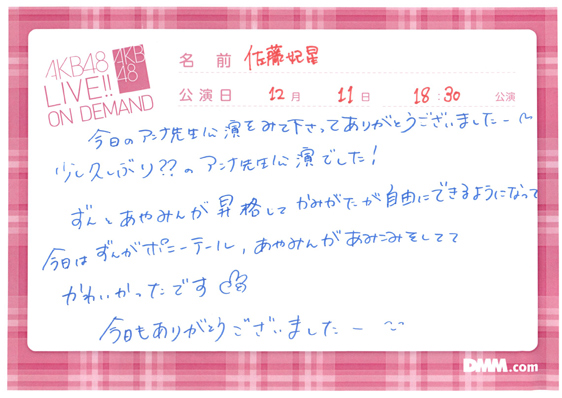 AKB48
LIVE!!
ON DEMAND
AKB
48
名前 佐藤妃星
公演日 12月 11日 18:30 公演
今日のアンナ先生公演をみて下さってありがとうございましたー
少し久しぶり??のアンナ先生公演でした!
ずんとあやみんが昇格してかみがたが自由にできるようになって
今日はずんがポニーテール,あやみんがあみこみをしてて
かわいかったです
今日もありがとうございましたー
DMM.com